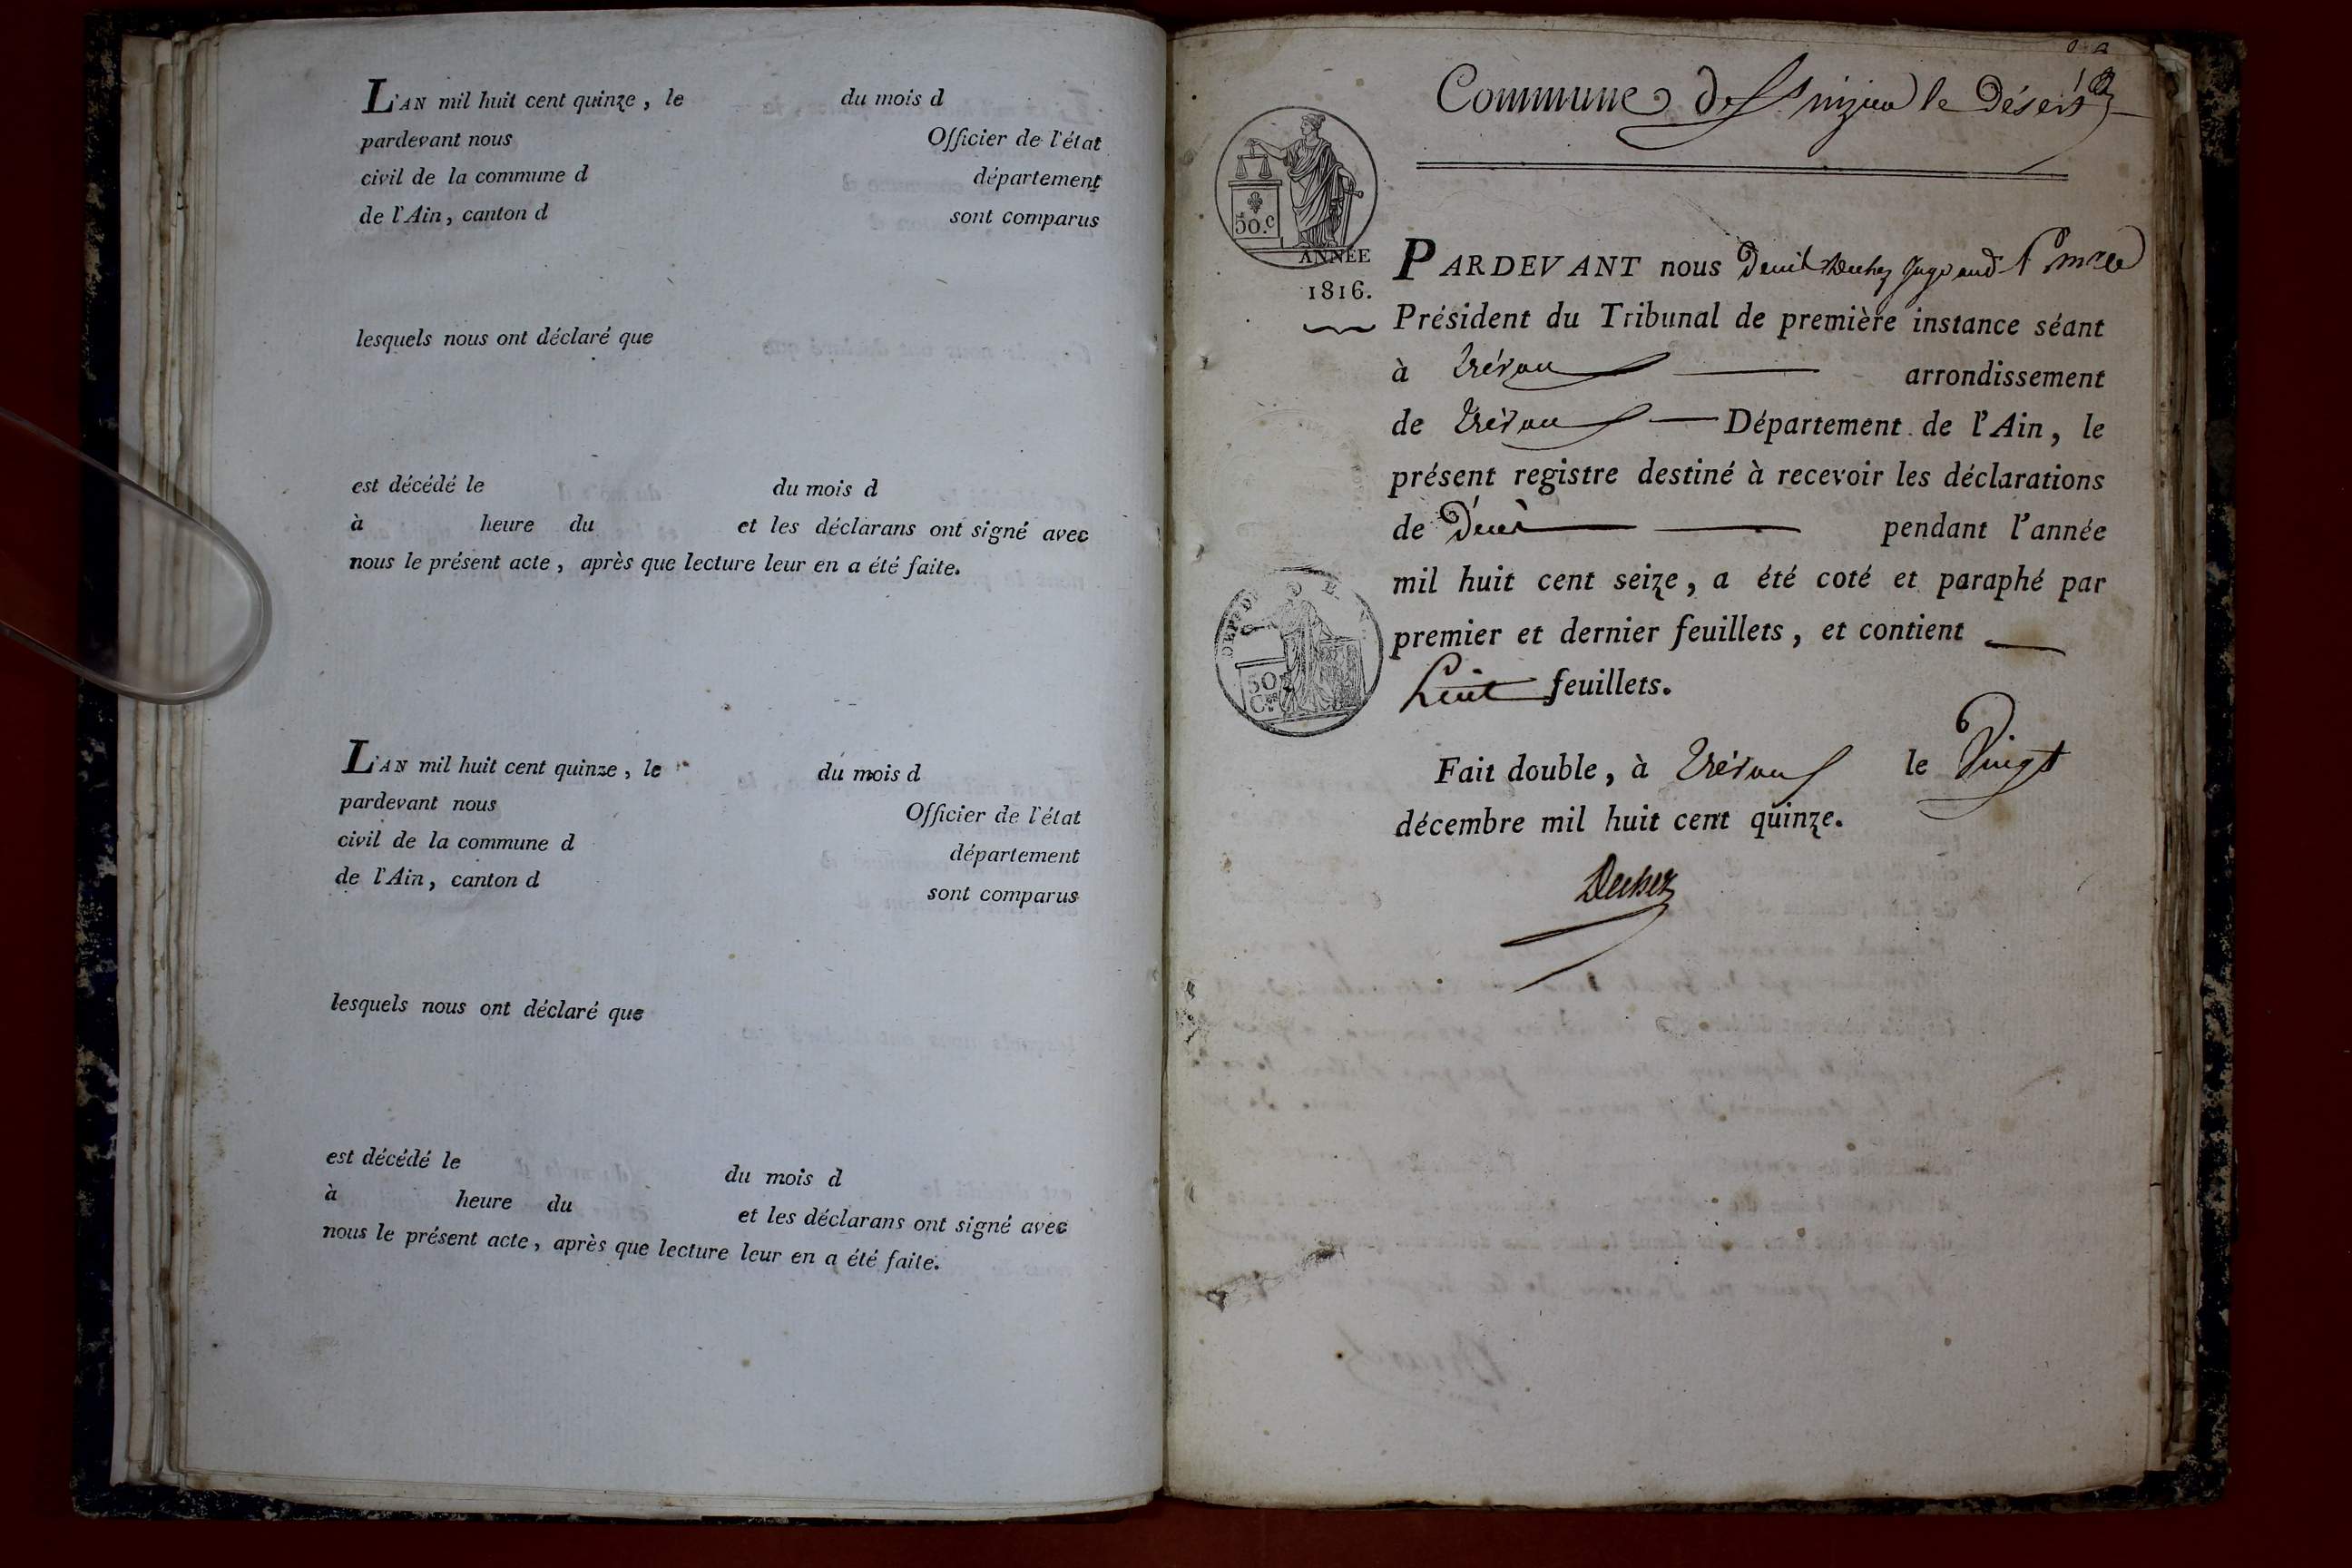 L'AN mil huit cent quinze, le du mois d
pardevant nous Officier de l'état
civil de la commune d département
de l'Ain, canton d sont comparus
lesquels nous ont déclaré que
est décédé le du mois d
à heure du et les déclarans ont signé avec
nous le présent acte, après que lecture leur en a été faite.
L'AN mil huit cent quinze, le du mois d
pardevant nous Officier de l'état
civil de la commune d département
de l'Ain, canton d sont comparus
lesquels nous ont déclaré que
est décédé le du mois d
à heure du et les déclarans ont signé avec
nous le présent acte, après que lecture leur en a été faite.
Commune de St nizier le Désert
50.c
ANNÉE
1816.
PARDEVANT nous Dechez
Président du Tribunal de première instance séant
à Trévoux arrondissement
de Trévoux Département de l'Ain, le
présent registre destiné à recevoir les déclarations
de Décès pendant l'année
mil huit cent seize, a été coté et paraphé par
premier et dernier feuillets, et contient
huit feuillets.
50
Fait double, à Trévoux le Vingt
décembre mil huit cent quinze.
Dechez